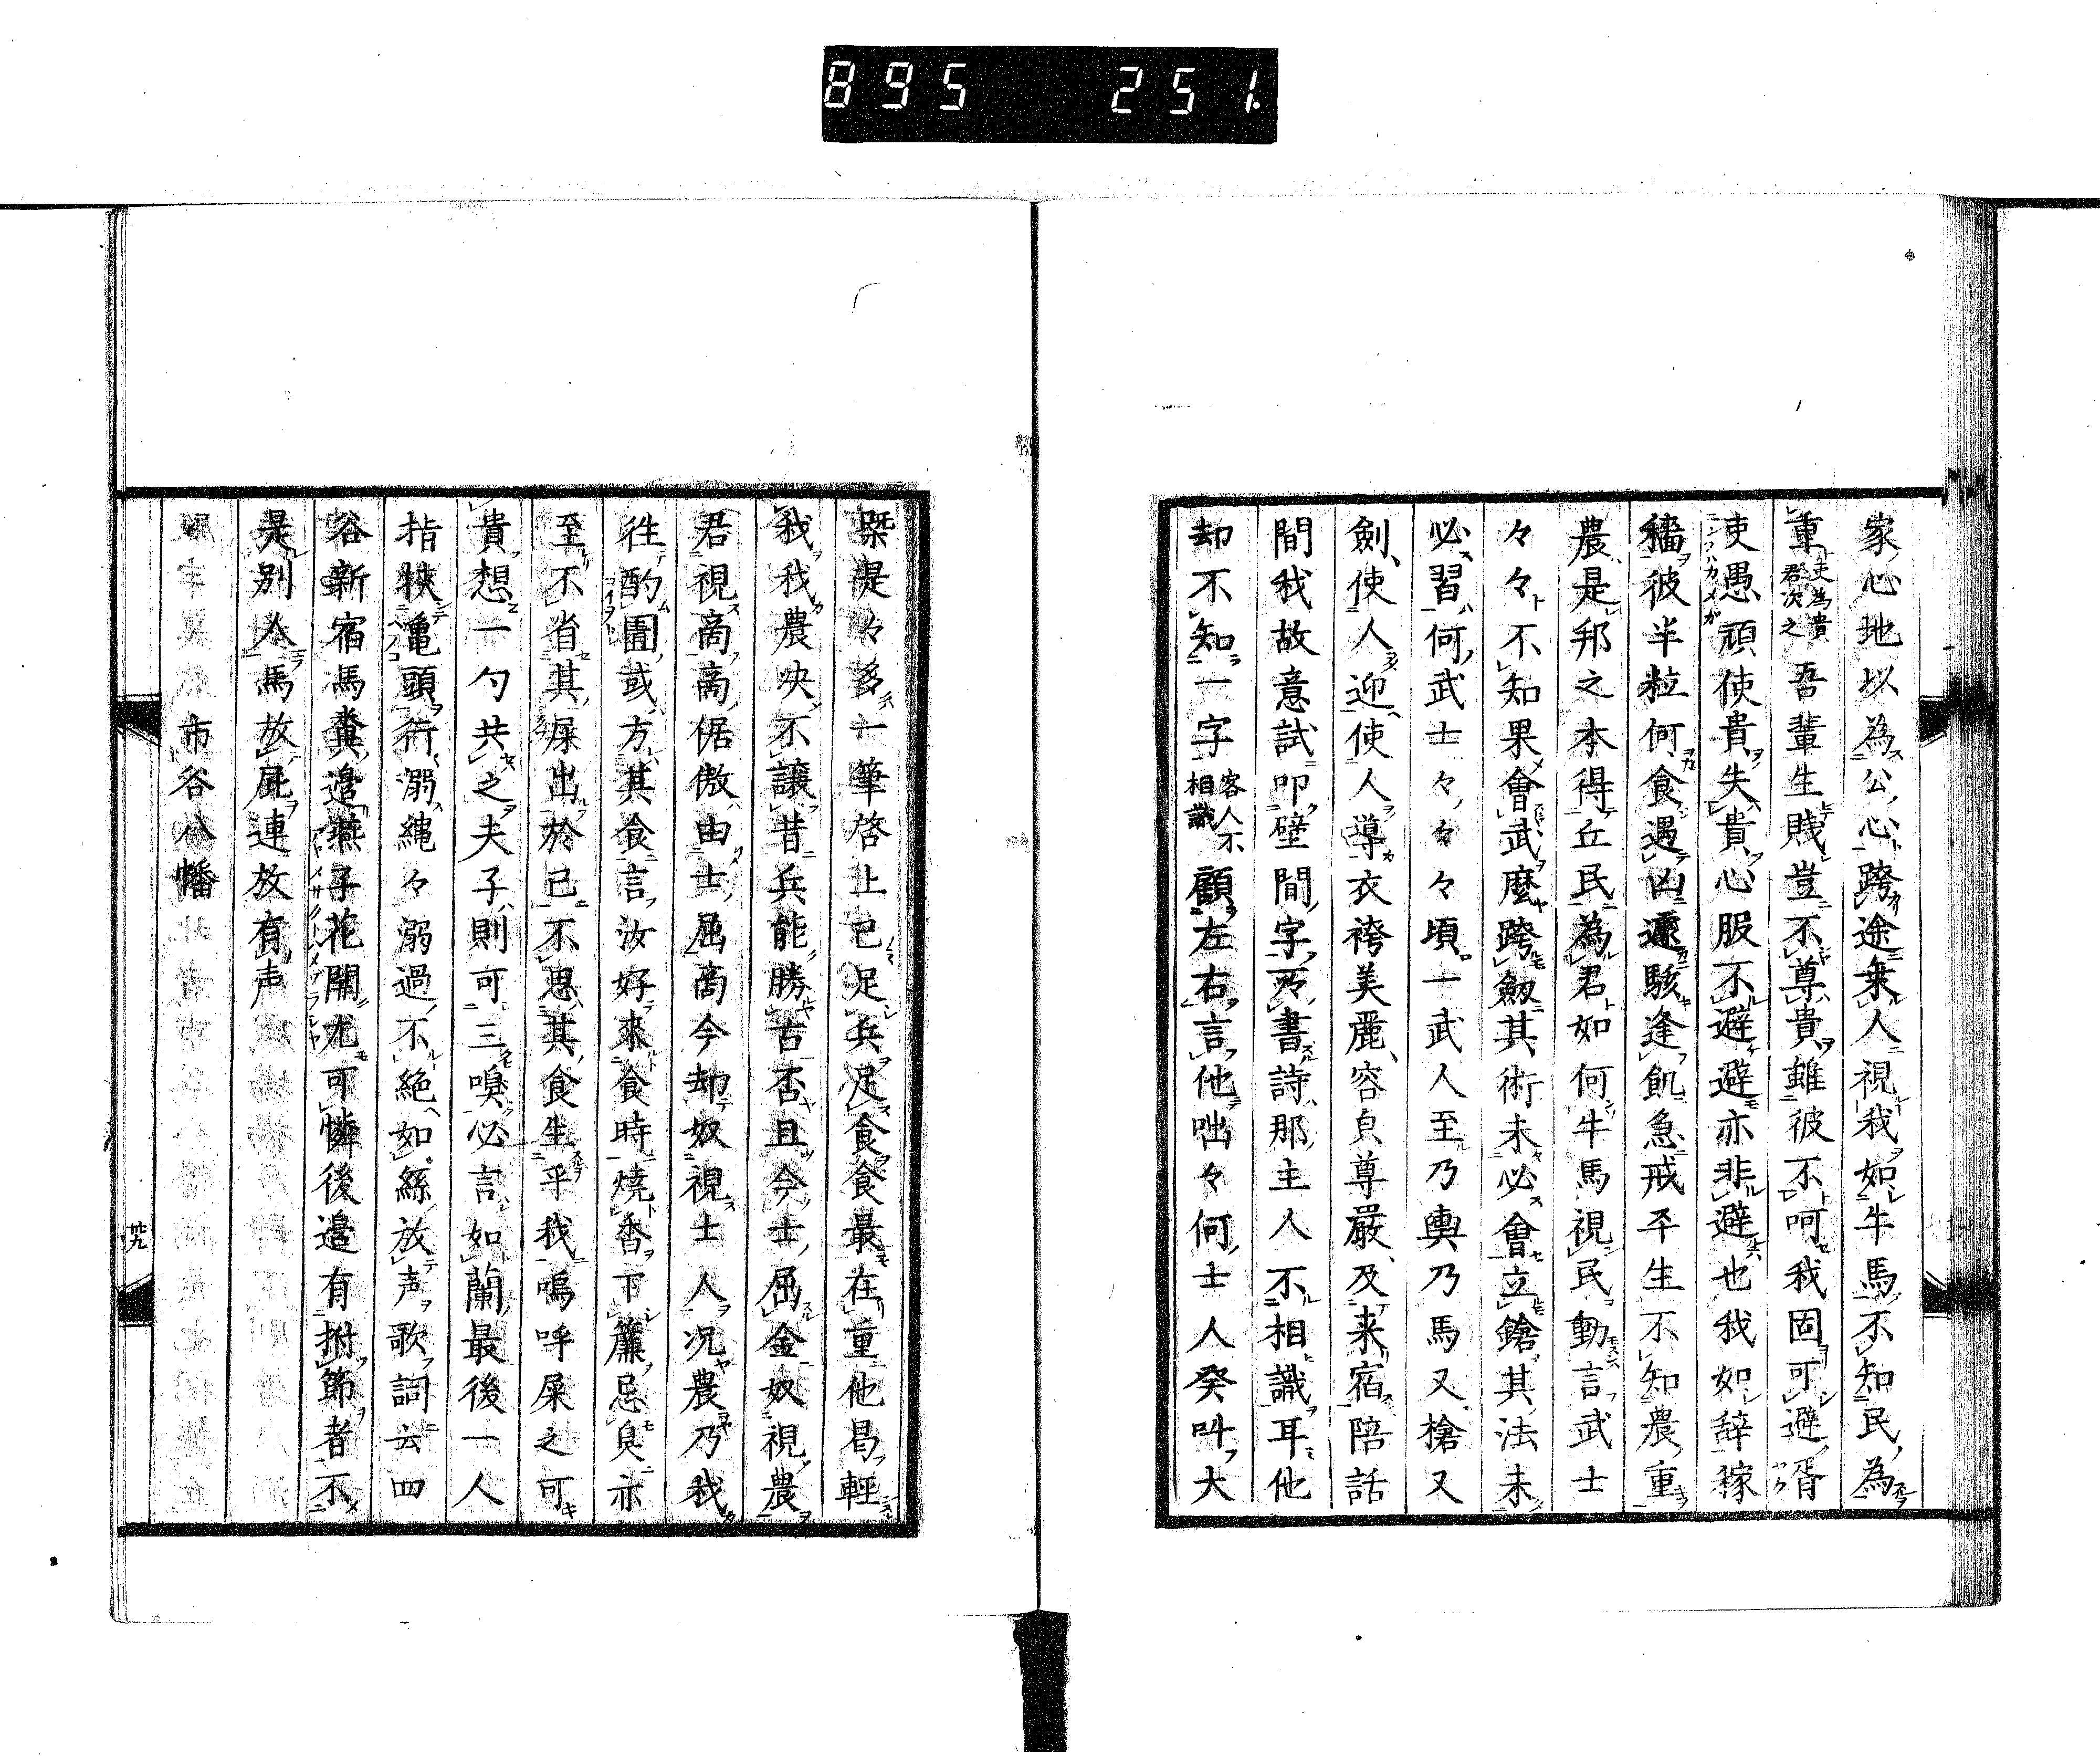 895 251.
家心地以為公心跨途乗人視我如牛馬不知民為
重吏為貴君次之吾輩生賎豈不尊貴雖彼不呵我固可避胥
吏愚頑使貴失貴心服不避避亦非避也我如辞稼
穡彼半粒何食遇凶遽駭逢飢急戒平生不知農重
農是邦之本得丘民為君如何牛馬視民動言武士
々々不知果會武麼跨劔其術未必會立鎗其法未
必習何武士々々々々頃一武人至乃輿乃馬又槍又
劍使人迎使人導衣袴美麗容皃尊嚴及来宿陪話
間我故意試叩壁間字所書詩那主人不相識耳他
却不知一字客人不相識顧左右言他咄々何士人癸叫大
槩是々多一筆啓上已足兵足食食最在重他曷輕
我我農决不讓昔兵能勝古否且今士屈金奴視農
君視商商倨傲由士屈商今却奴視士人况農乃我
徃酌圊或方其食言汝好來食時燒香下簾忌臭亦
至不省其屎出於已不思其食生乎我嗚呼屎之可
貴想一勺共之夫子則可三嗅必言如蘭最後一人
指狹亀頭衎溺縄々溺過不絕如絲放声歌詞云四
谷新宿馬糞邉燕子花開尤可憐後邉有拊節者不
是别人馬放屁連放有声
市谷八幡